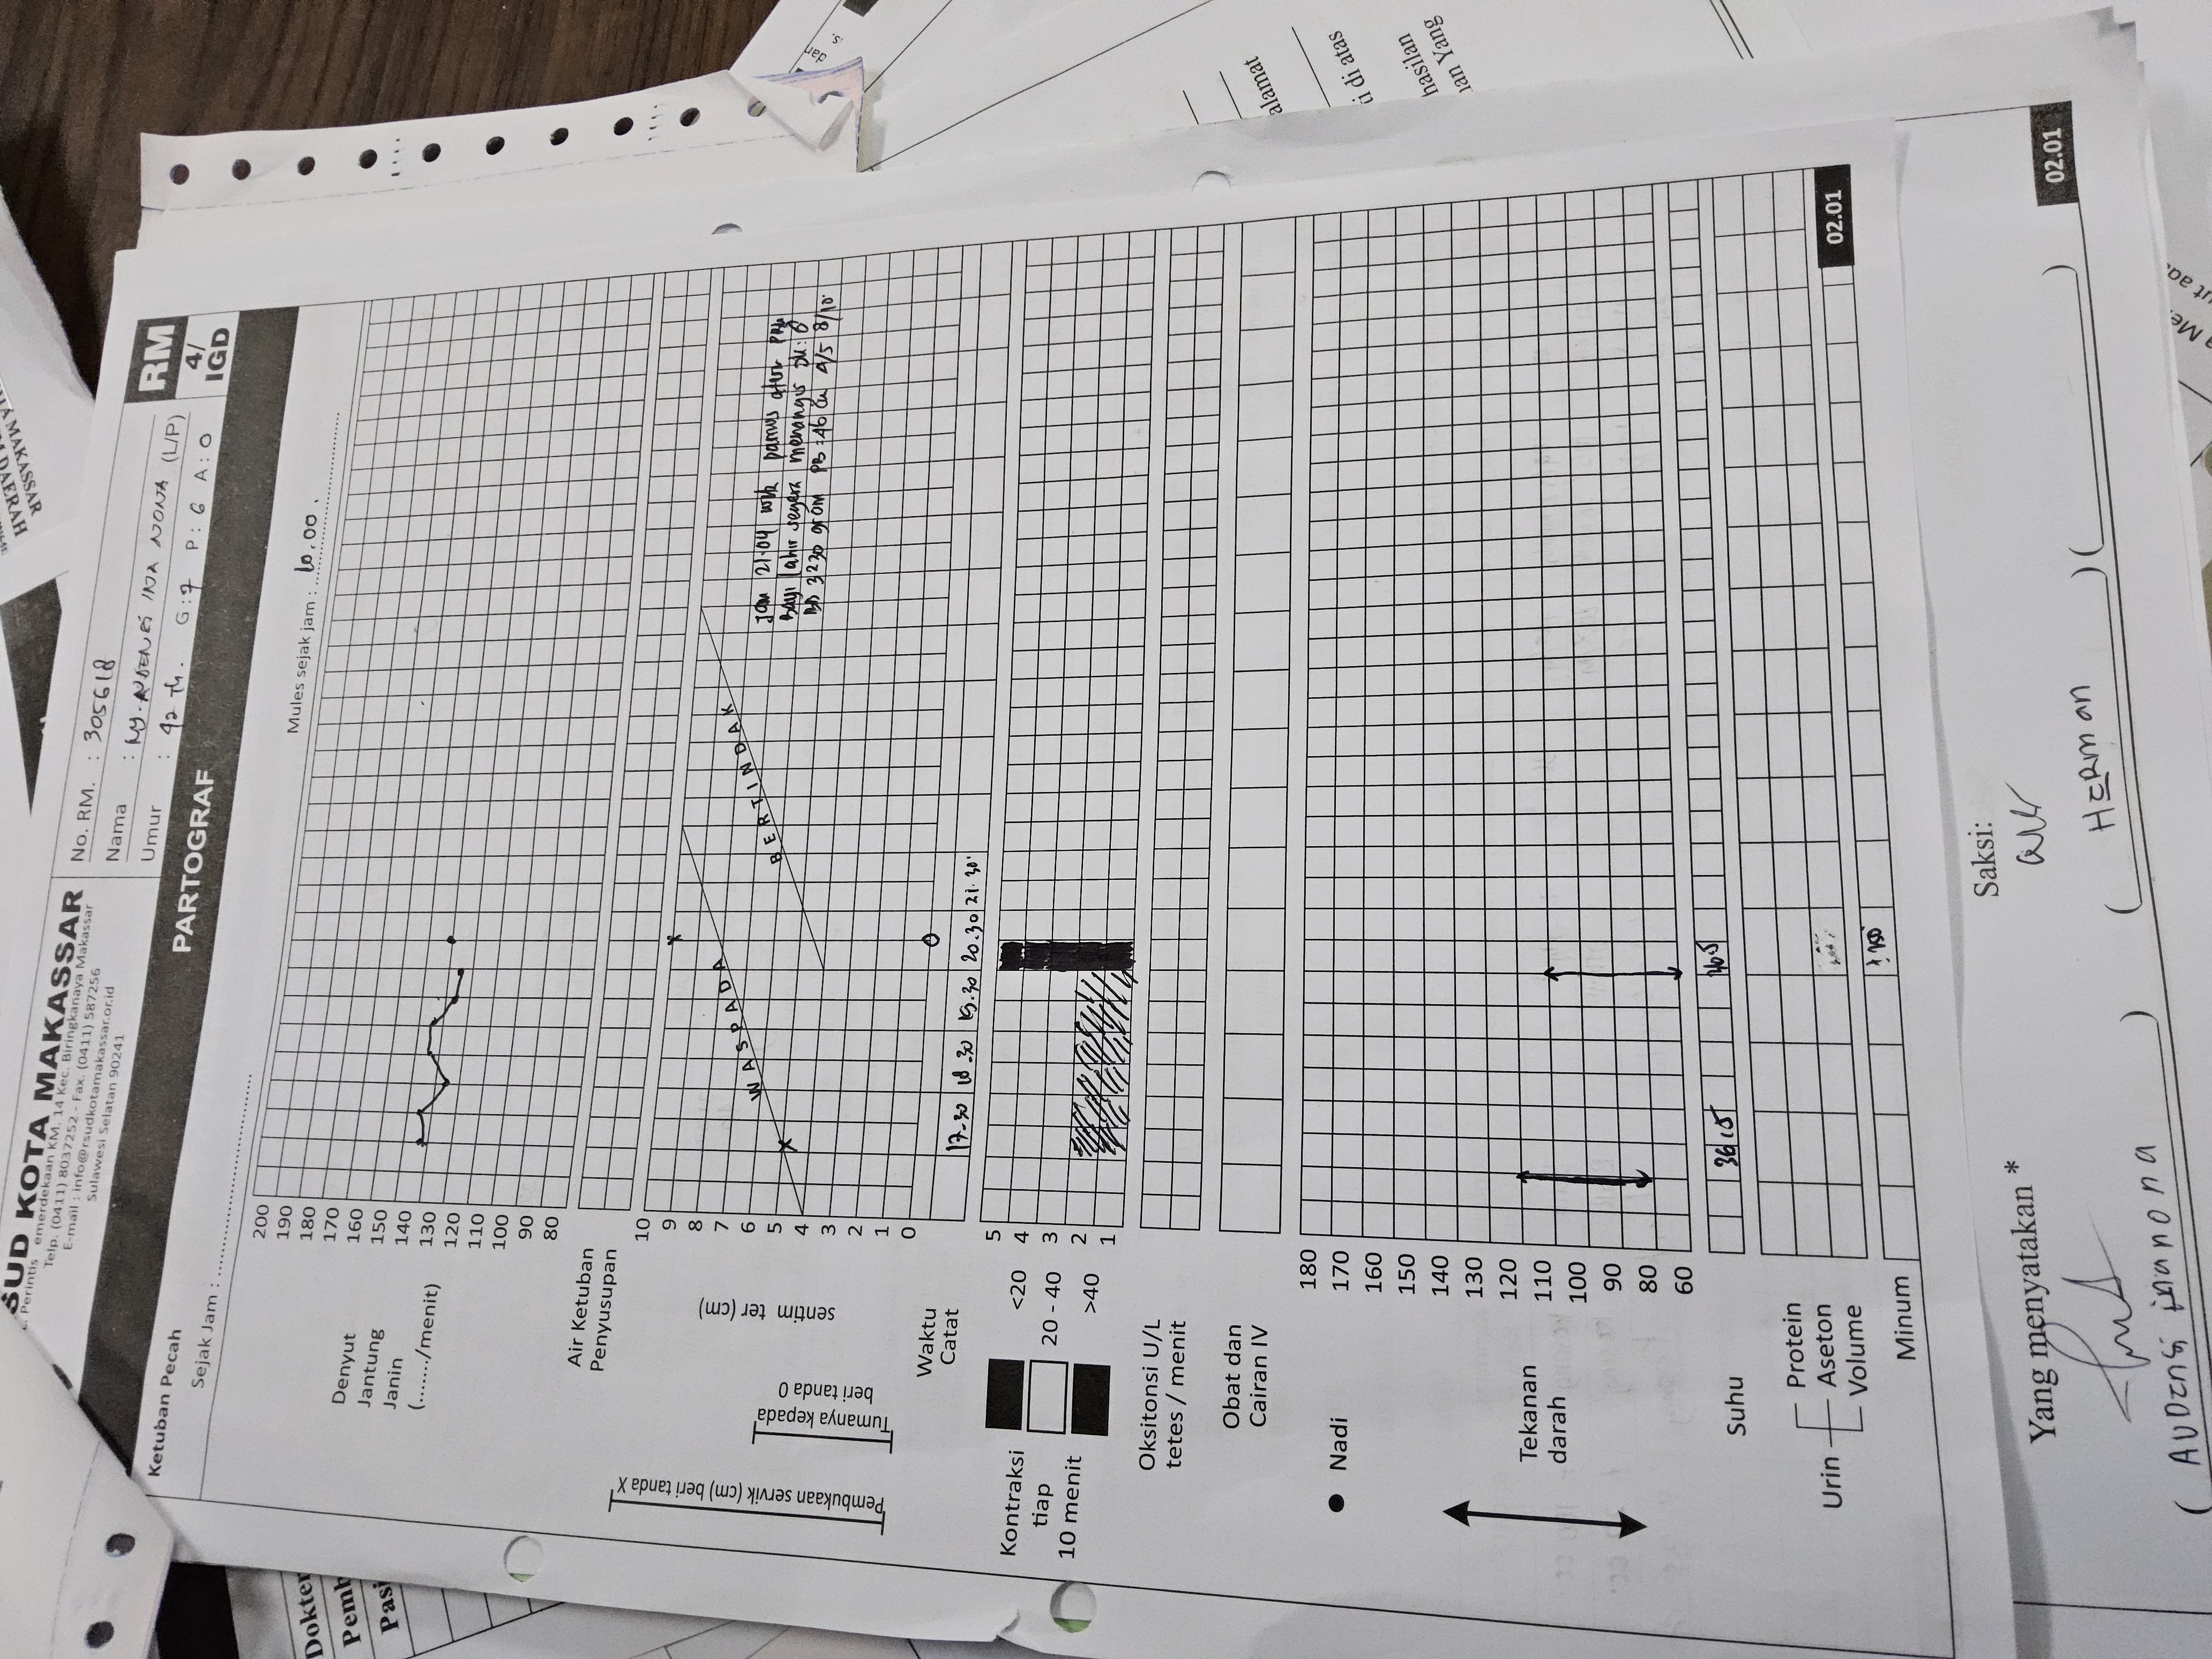 SUD KOTA MAKASSAR
Perintis emerdekaan KM. 14 Kec. Biringkanaya Makassar
Telp. (0411) 8037252 - Fax. (0411) 587256
E-mail : info@rsudkotamakassar.or.id
Sulawesi Selatan 90241
No. RM. : 305618
Nama : NY. INA NONA (L/P)
Umur : 42 th. G : 7 P : 6 A : 0
RM
4/
IGD
PARTOGRAF
Ketuban Pecah
Sejak Jam :
Mules sejak jam : 10.00
Denyut
Jantung
Janin
(......./menit)
200
190
180
170
160
150
140
130
120
110
100
90
80
Air Ketuban
Penyusupan
Pembukaan servik (cm) beri tanda X
Tumanya kepada
beri tanda 0
sentim ter (cm)
10
9
8
7
6
5
4
3
2
1
0
WASPADA
BERTINDAK
x
x
o
Jam 21.04 wita
Bayi lahir segera menangis
BB 3230 gram PB : 46 cm A/S 8/10
Waktu
Catat
17.30 18.30 19.30 20.30 21.30
Kontraksi
tiap
10 menit
<20
20 - 40
>40
5
4
3
2
1
Oksitonsi U/L
tetes / menit
Obat dan
Cairan IV
Nadi
Tekanan
darah
180
170
160
150
140
130
120
110
100
90
80
60
Suhu
Urin
Protein
Aseton
Volume
Minum
02.01
Yang menyatakan *
Saksi:
Herman
02.01
MAKASSAR
DAERAH
Dokter
Pemb
Pasi
alamat
i di atas
hasilan
ian Yang
dar